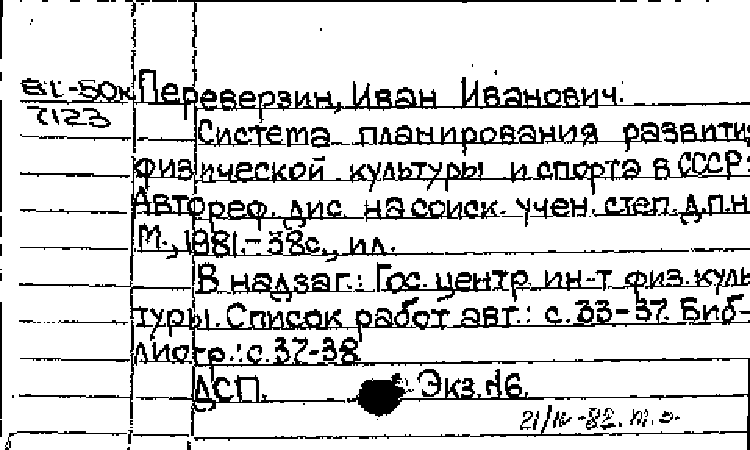 81-50к Переверзин, Иван Иванович.
7123
Система планирования развити
физической культуры и спорта в СССР:
Автореф. дис. на соиск. учен. степ. д.п.н
М., 1981.- 38с., ил.
В надзаг.: Гос. центр. ин-т физ. куль
туры. Список работ авт.: с.33-37. Биб-
лиогр.: с.37-38
ДСП. Экз. №6.